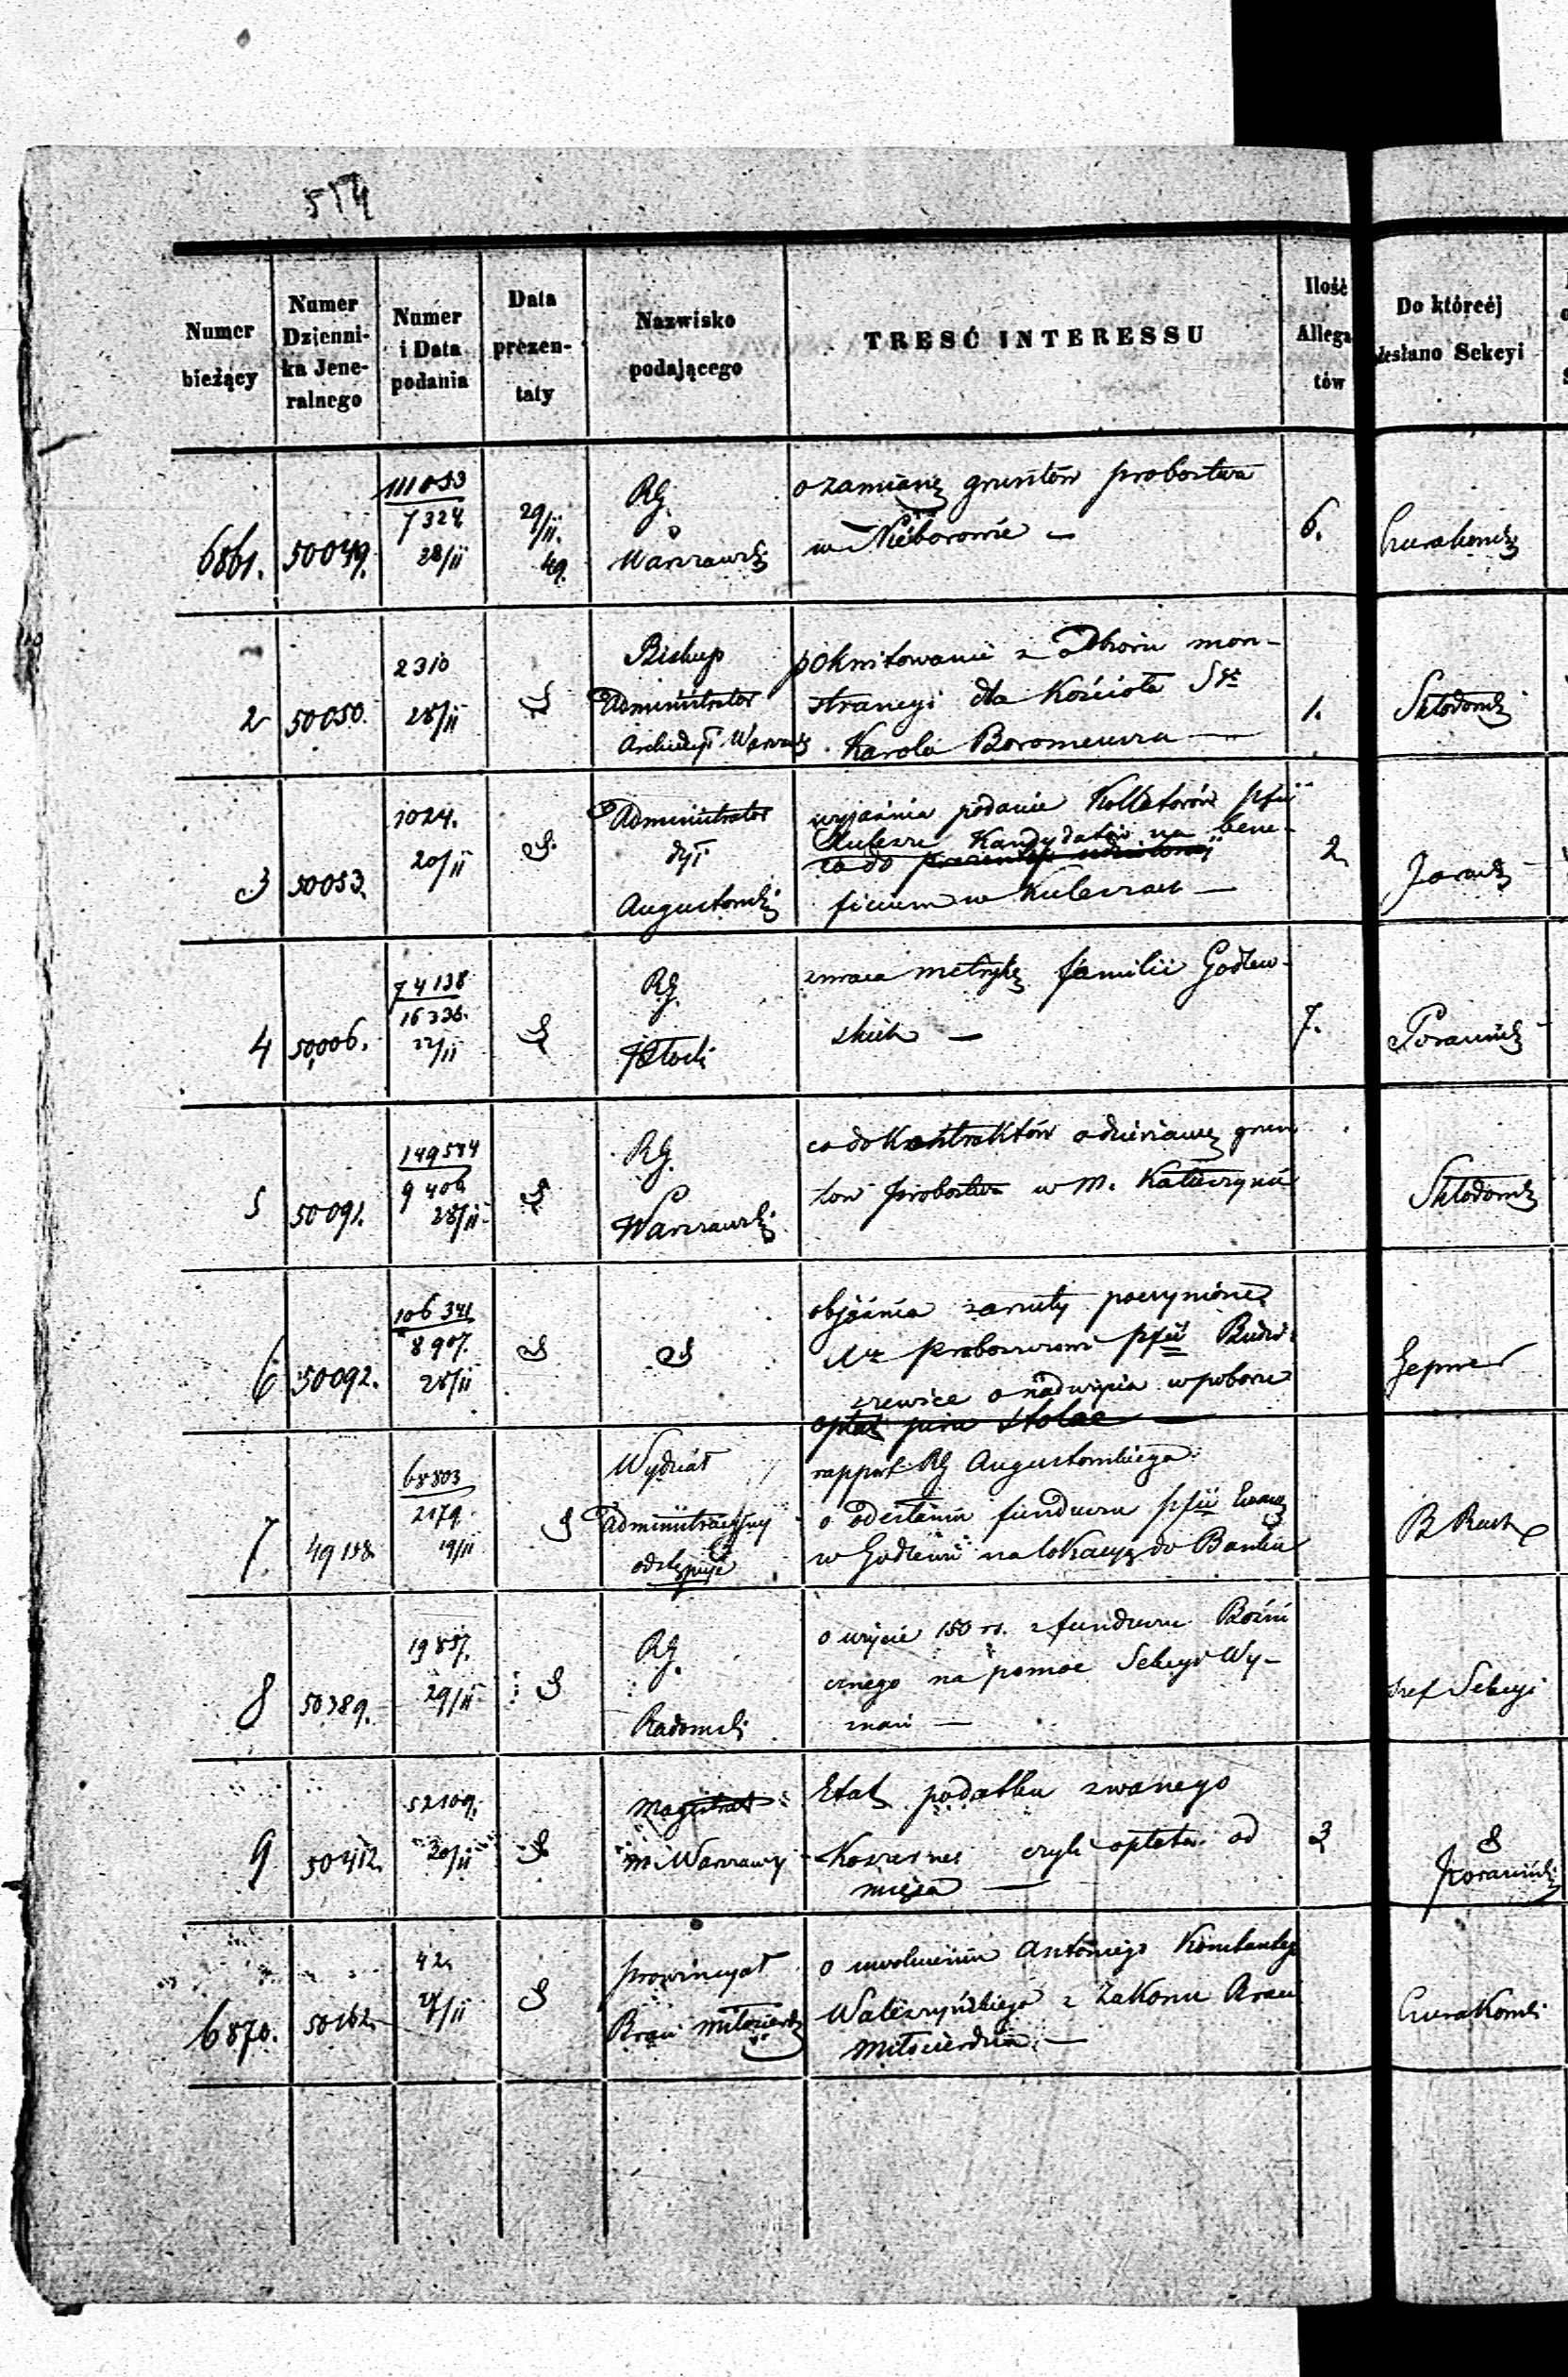 514
Numer bieżący
Numer Dzienni-ka Jene-ralnego
Numer i Data podania
Data prezen-taty
Nazwisko podającego
TRESĆ INTERESSU
Ilość Allega tów
Do któreéj desłano Sekcyi
6861. 50049. 111053 7324 28/11 29/11. 49. RG. Warszawski
o zamianę gruntów probostwa
w Nieborowie —
6.
2 50050. 2310 28/11 Biskup Administrator Archidyi Warszaws
pokwitowanie z odbioru mon-
strancyi dla Kościoła Sgo
Karola Boromeusza —
1.
Skłodowski
3 50053. 1024. 20/11 Administrator dyi Augustowski
wyjaśnia podanie Kollatorów pfii
Kulesze Kandydatów na bene-
co do
ficium w Kuleszach —
2
4 50006. 74138 16336. 22/11 RG. Płocki
zwraca metrykę familii Godlew-
skich —
7.
5 50091. 149544 9406 28/11 RG. Warszawski
co do Kontraktów o dzierżawę grun
tów probostwa w m. Kałuszynie
Skłodowski
6 50092. 106341 8907. 28/11
objaśnia zarzuty poczynione
proboszczowi pfii Budzi-
szewice o nadużycia w poborze
opłat jura stolae —
7 49138 68803 2179. 19/11 Wydział Administracyjny odstępuje
rapport RG Augustowskiego
o odesłaniu funduszu pfii Ewang
w Godlewie na lokacyę do Banku
8 50389. 19857. 29/11 RG. Radomski
o użycie 150 rs. z funduszu Bożni
cznego na pomoc Sekcyi Wy-
znań —
Szef Sekcyi
9 50412. 52109. 20/11 Magistrat m. Warszawy
Etat podatku zwanego
Koszernes czyli opłata od
mięsa —
3
6870. 50162. 42. 28/11 prowincyał Braci miłosierdz
o uwolnieniu Antoniego Konstantego
z Zakonu Braci
Miłosierdzia. —